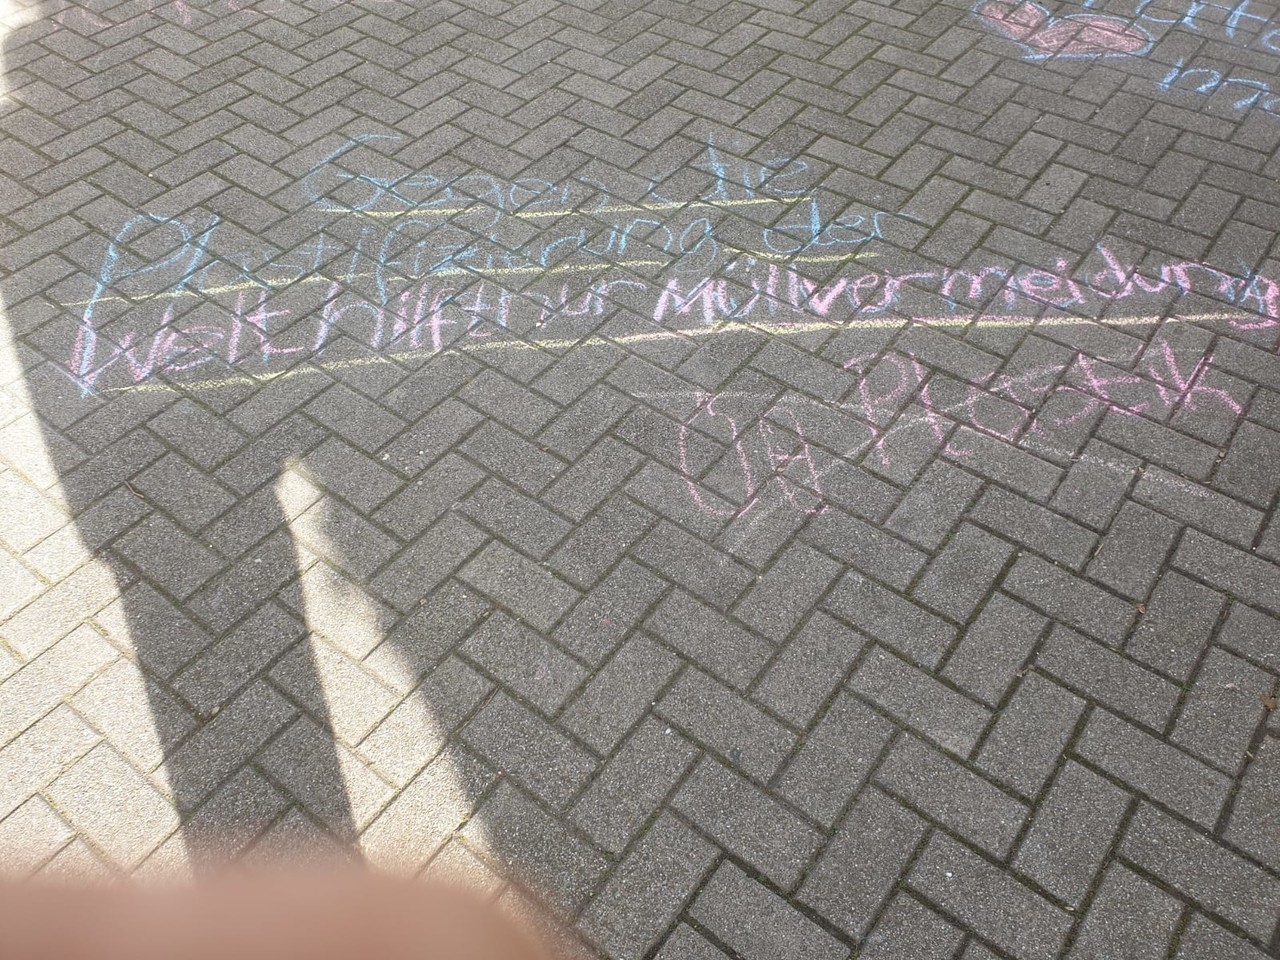 Gegen die
Plastifizierung der
Welt hilft nur Müllvermeidung
Plastik